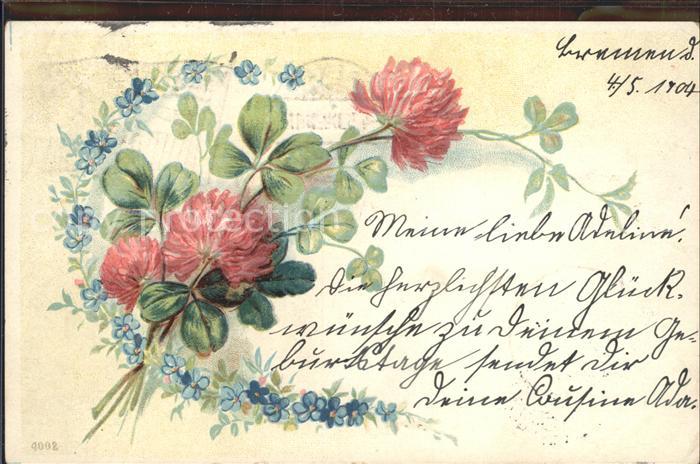 Bremen d.
4/5. 1904
Meine liebe Adeline!
Die herzlichsten Glück-
wünsche zu Deinem Ge-
burtstage sendet Dir
Deine Cousine Ada.
4002